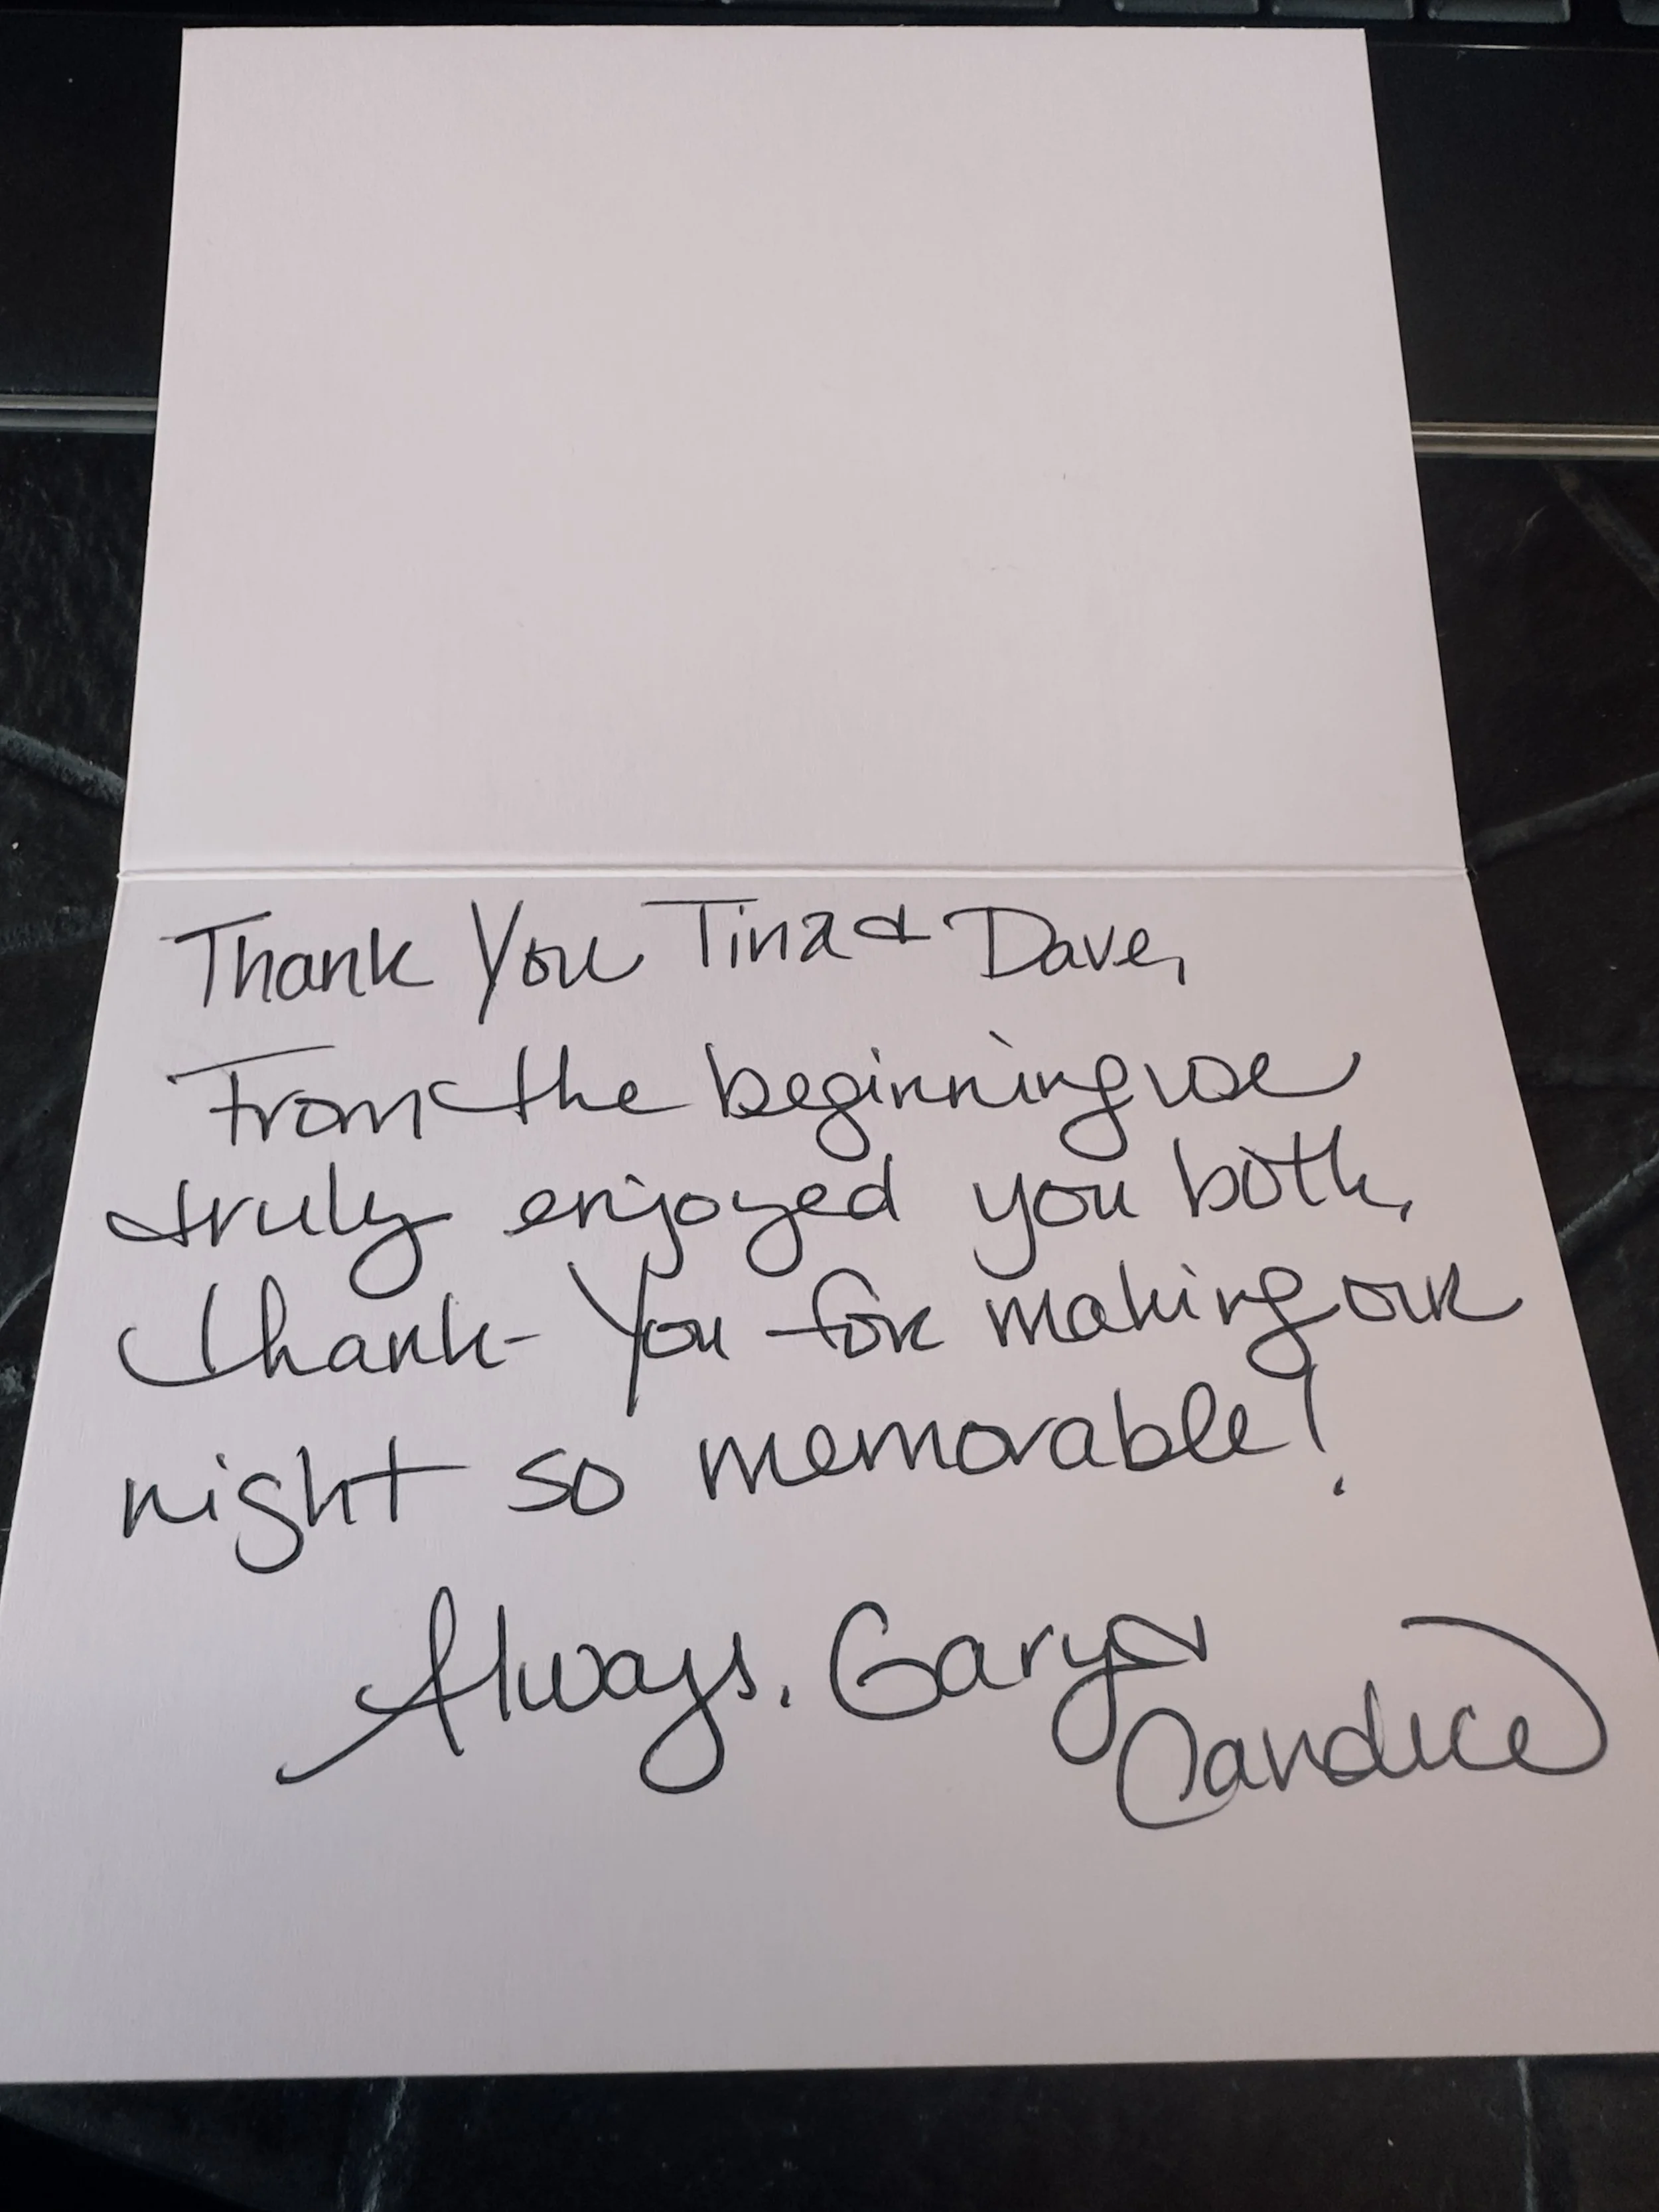 Thank You Tina & Dave,
From the beginning we
truly enjoyed you both,
thank-you for making our
night so memorable!
Always, Gary &
Candice